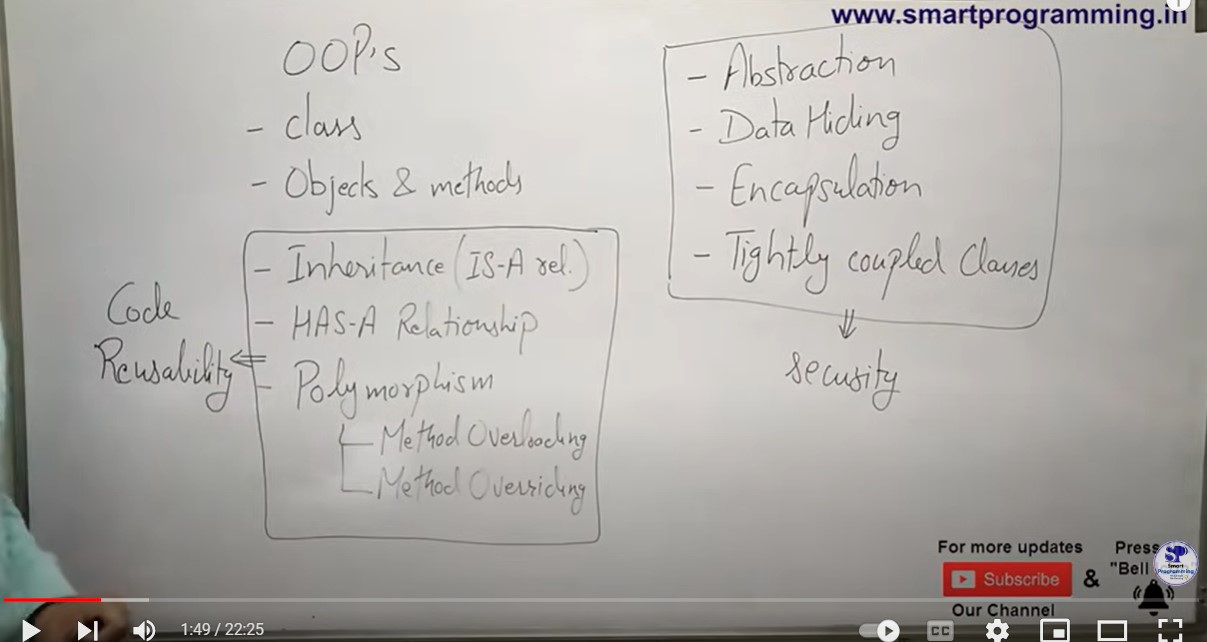 www.smartprogramming.in
OOP's
- class
- Objects & methods
- Inheritance (IS-A rel.)
- HAS-A Relationship
- Polymorphism
Method Overloading
Method Overriding
Code
Reusability
- Abstraction
- Data Hiding
- Encapsulation
- Tightly coupled Classes
security
For more updates
Subscribe
&
Our Channel
Press
"Bell
SP
Smart
Programming
1:49 / 22:25
CC